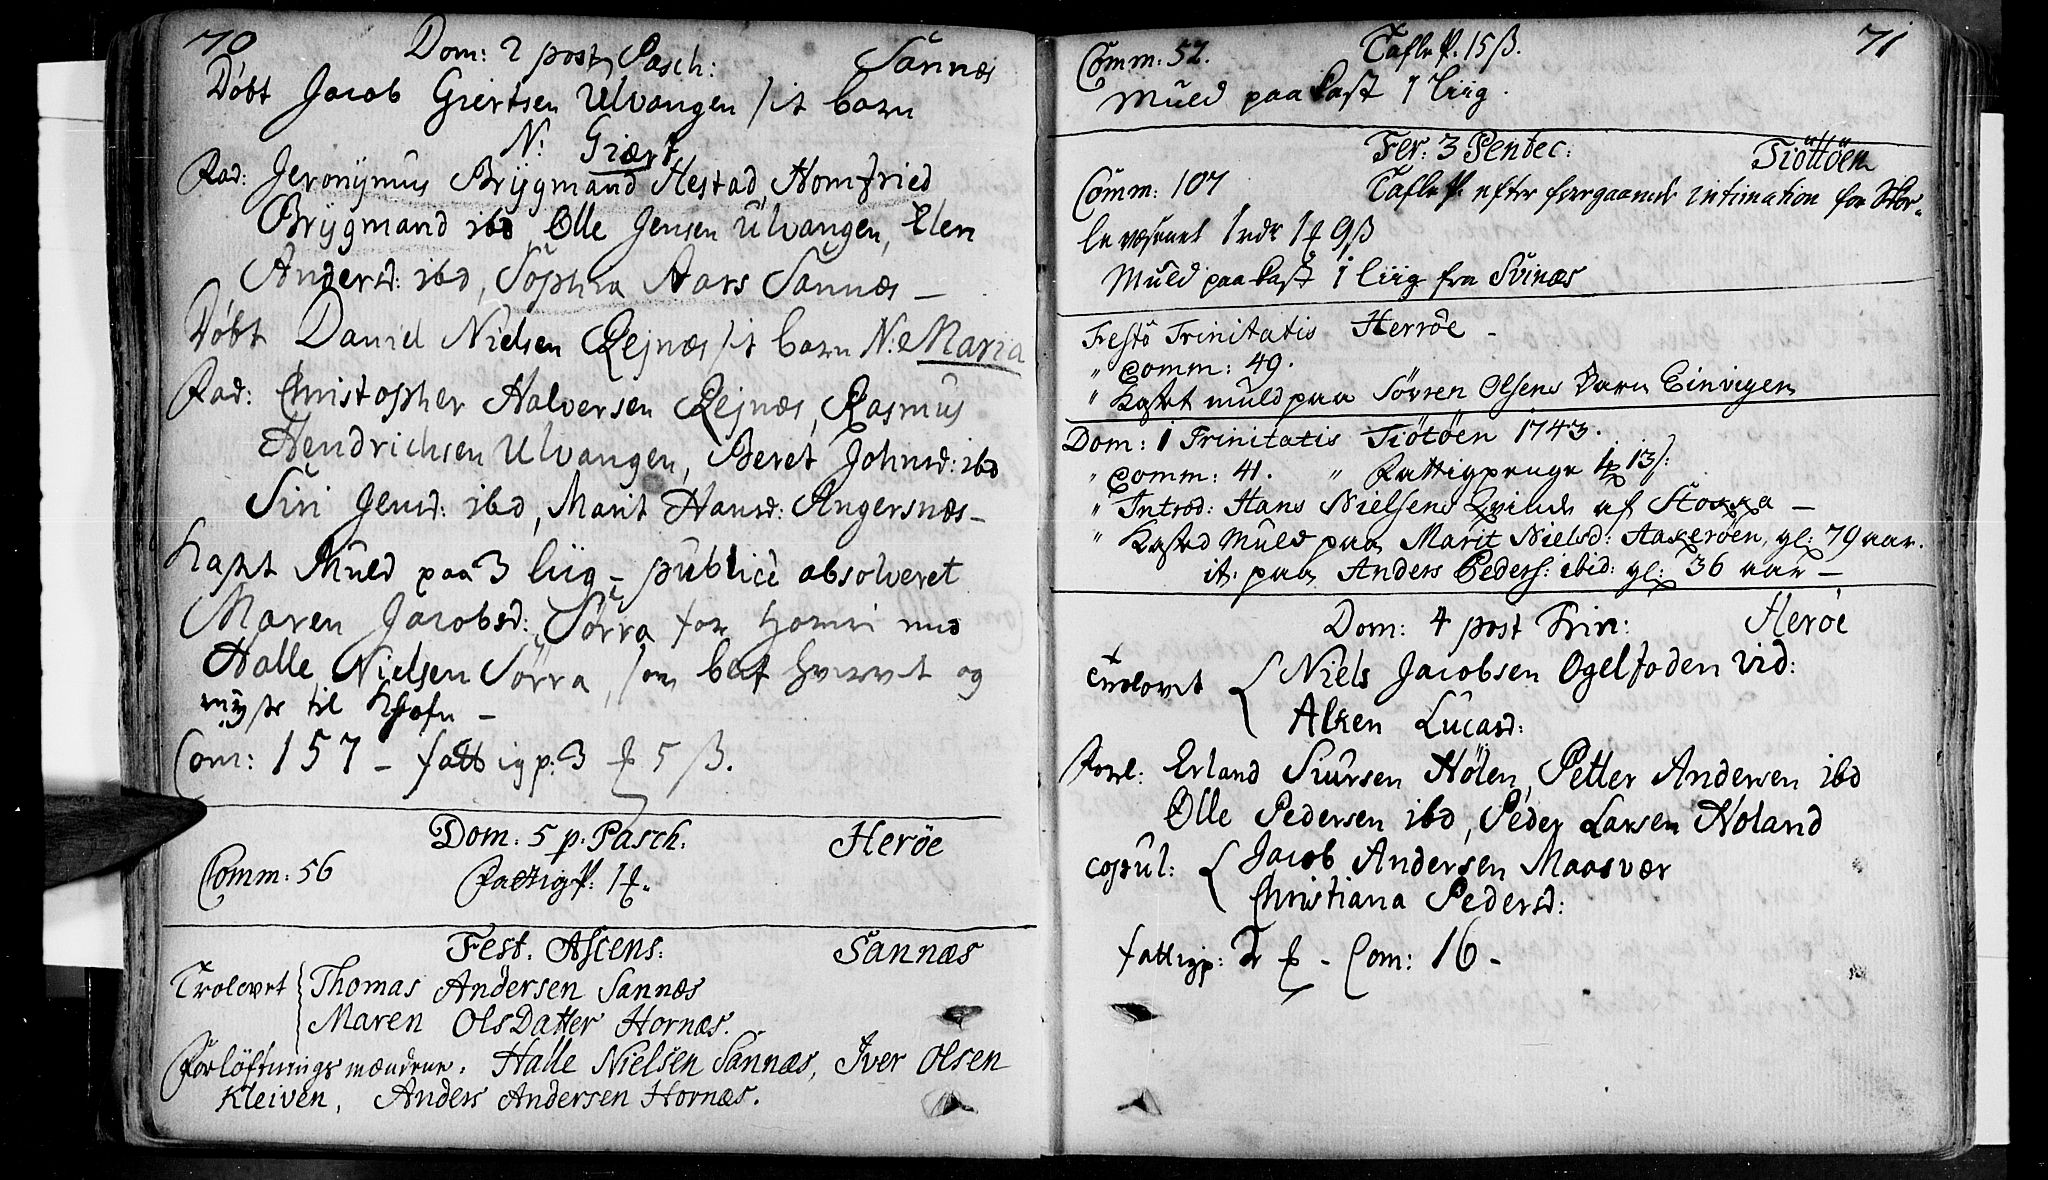 70
Dom: 2 post Pasch: Sannæs
Døbt Jacob Giertsen Ulvangen sit barn
N: Giært
Fad: Jeronÿmus Brÿgmand Hestad, Homfried
Brÿgmand ibd, Olle Jensen Ulvangen, Elen
Andersd: ibd, Sophia Aars Sannæs –
Døbt Daniel Nielsen Rejnæs sit barn N: Maria
Fad: Christopher Halversen Rejnæs, Rasmus
Hendrichsen Ulvangen, Beret Johnsd: ibd
Siri Jensd: ibd, Marit Hansd: Angersnæs –
Kast Muld paa 3 liig – publicè absolveret
Maren Jacobsd: Sörra for horeri med
Halle Nielsen Sörra, som blef hvervet og
til
Com: 157 – fattigp: 3 ₰ 5 ß.
Dom: 5 p. Pasch: Herøe
Comm: 56 Fattig P: 1 ₰.
Fest. Ascens: Sannæs
Trolovet Thomas Andersen Sannæs
Maren Olsdatter Hornæs.
Forløftnings mændene. Halle Nielsen Sannæs, Iver Olsen
Kleiven, Anders Andersen Hornæs.
71
Comm: 52. Tafle P. 15 ß.
Muld paa Cast 1 liig.
Fer: 3 Pentec: Tiöttöen
Comm: 107 Tafle P. efter foregaaende intimation for Skor-
le væsenet 1 rdr 1 ₰ 9 ß
Muld paa Cast 1 liig fra Svinæs
Festo Trinitatis Herröe –
" Comm: 49.
" Kastet muld paa Sövren Olsens barn Einvigen
Dom: 1 Trinitatis Tiötöen 1743.
" Comm: 41. " Fattigpenge 1 ₰ 13 ß:
" Introd: Hans Nielsens Qvinde af Stokka –
" Kasted Muld paa Marit Nielsd: Aakerøen, gl: 79 aar.
it: paa Anders Peders: ibid: gl: 36 aar –
Dom: 4 post Trin: Herøe
Trolovet Niels Jacobsen Ogelfoden vid:
Alken Lucasd:
Forl: Erland Siursen Hölen, Petter Andersen ibd
Olle Pedersen ibd, Peder Larsen Holand
copul: Jacob Andersen Maasvær
Christiana Pedersd:
fattigp: 2 ₰ – Com: 16 –